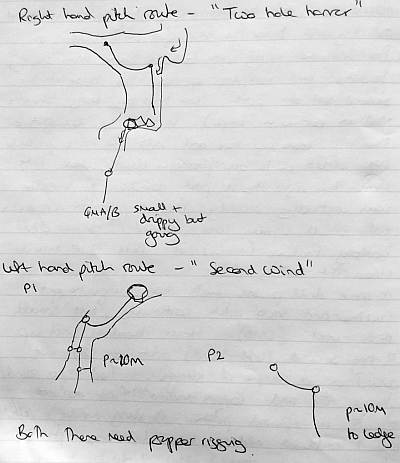 Right hand pitch route - "Two hole horror"
QMA/B small +
drippy but
going
Left hand pitch route - "Second Wind"
P1
P~20m
P2
P~10m
to ledge
Both These need proper rigging.